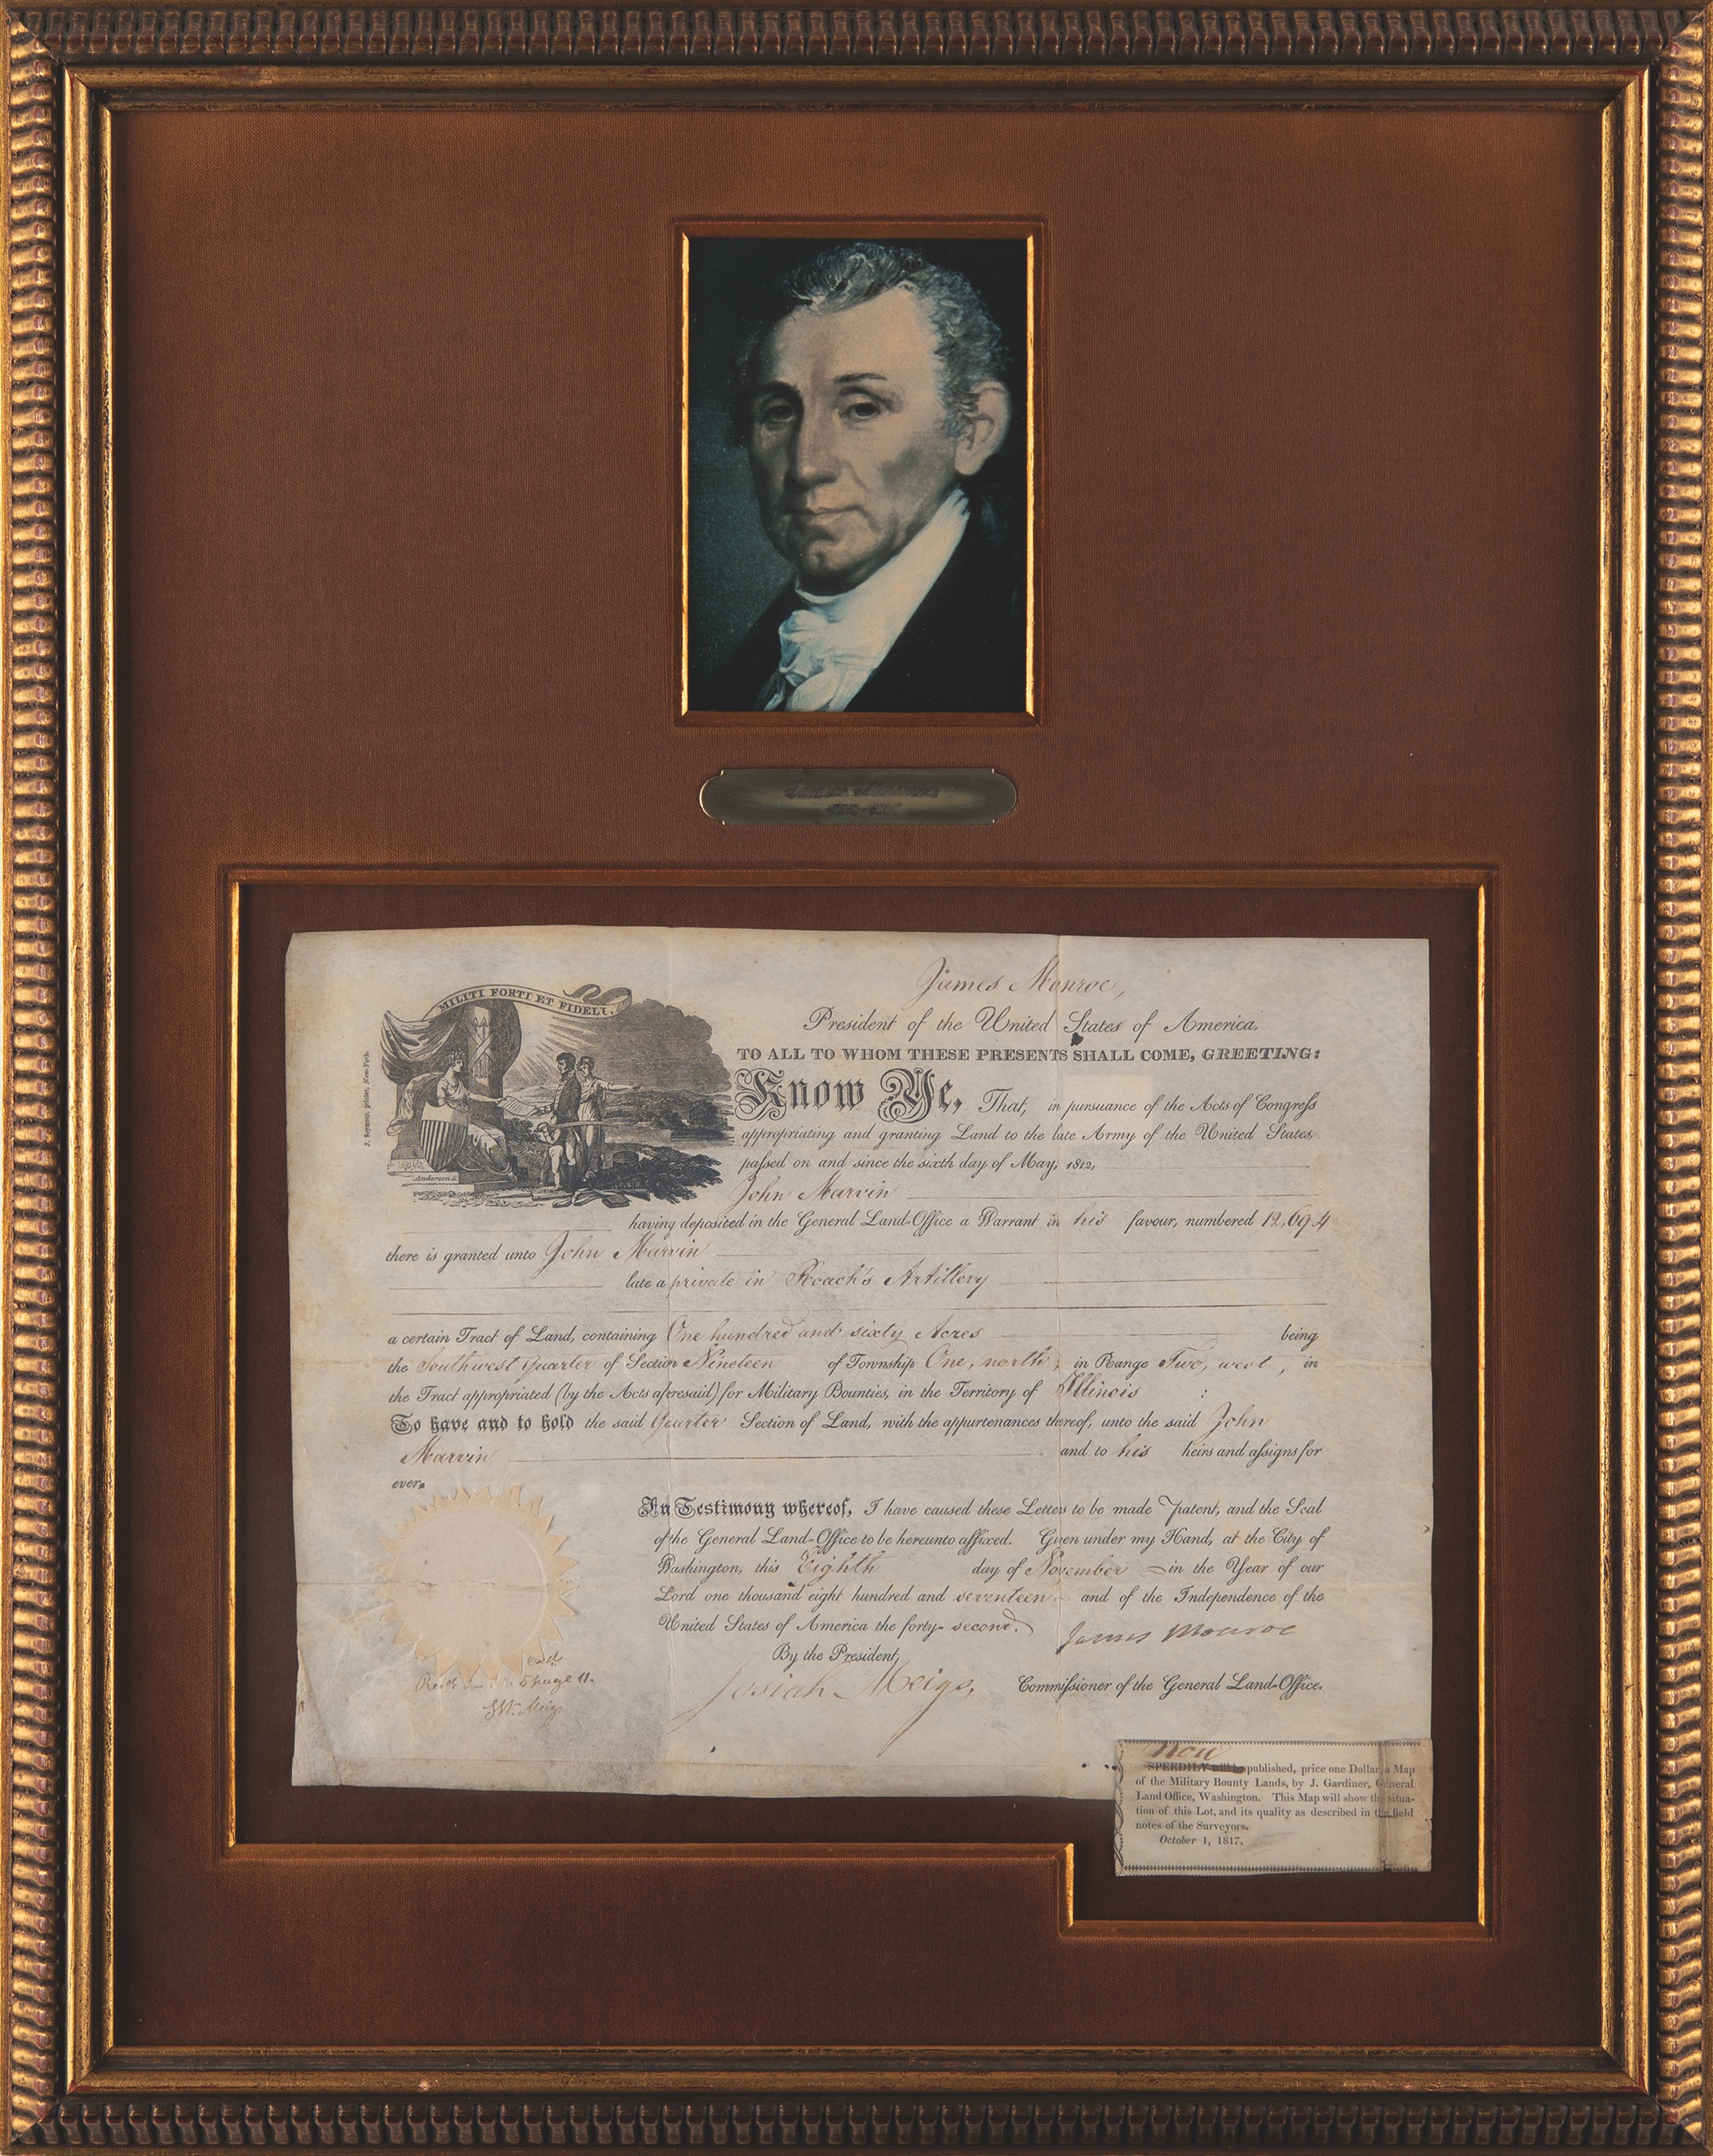 MILITI FORTI ET FIDELI.
J. Seymour, print, New-York.
Anderson S.
James Monroe,
President of the United States of America.
TO ALL TO WHOM THESE PRESENTS SHALL COME, GREETING:
Know Ye, That, in pursuance of the Acts of Congress
appropriating and granting Land to the late Army of the United States,
passed on and since the sixth day of May, 1812,
John Marvin
having deposited in the General Land-Office a Warrant in his favour, numbered 12,694
there is granted unto John Marvin
late a private in Roach's Artillery
a certain Tract of Land, containing One hundred and sixty Acres being
the Southwest Quarter of Section Nineteen of Township One, north, in Range Two, west, in
the Tract appropriated (by the Acts aforesaid) for Military Bounties, in the Territory of Illinois :
To have and to hold the said Quarter Section of Land, with the appurtenances thereof, unto the said John
Marvin and to his heirs and assigns for
ever.
In Testimony whereof, I have caused these Letters to be made Patent, and the Seal
of the General Land-Office to be hereunto affixed. Given under my Hand, at the City of
Washington, this Eighth day of November in the Year of our
Lord one thousand eight hundred and seventeen and of the Independence of the
United States of America the forty-second.
James Monroe
By the President,
Josiah Meigs, Commissioner of the General Land-Office.
5 page 11.
S.W. Meigs
Now
SPEEDILY will be published, price one Dollar, a Map
of the Military Bounty Lands, by J. Gardiner, General
Land Office, Washington. This Map will show the situa-
tion of this Lot, and its quality as described in the field
notes of the Surveyors.
October 1, 1817.